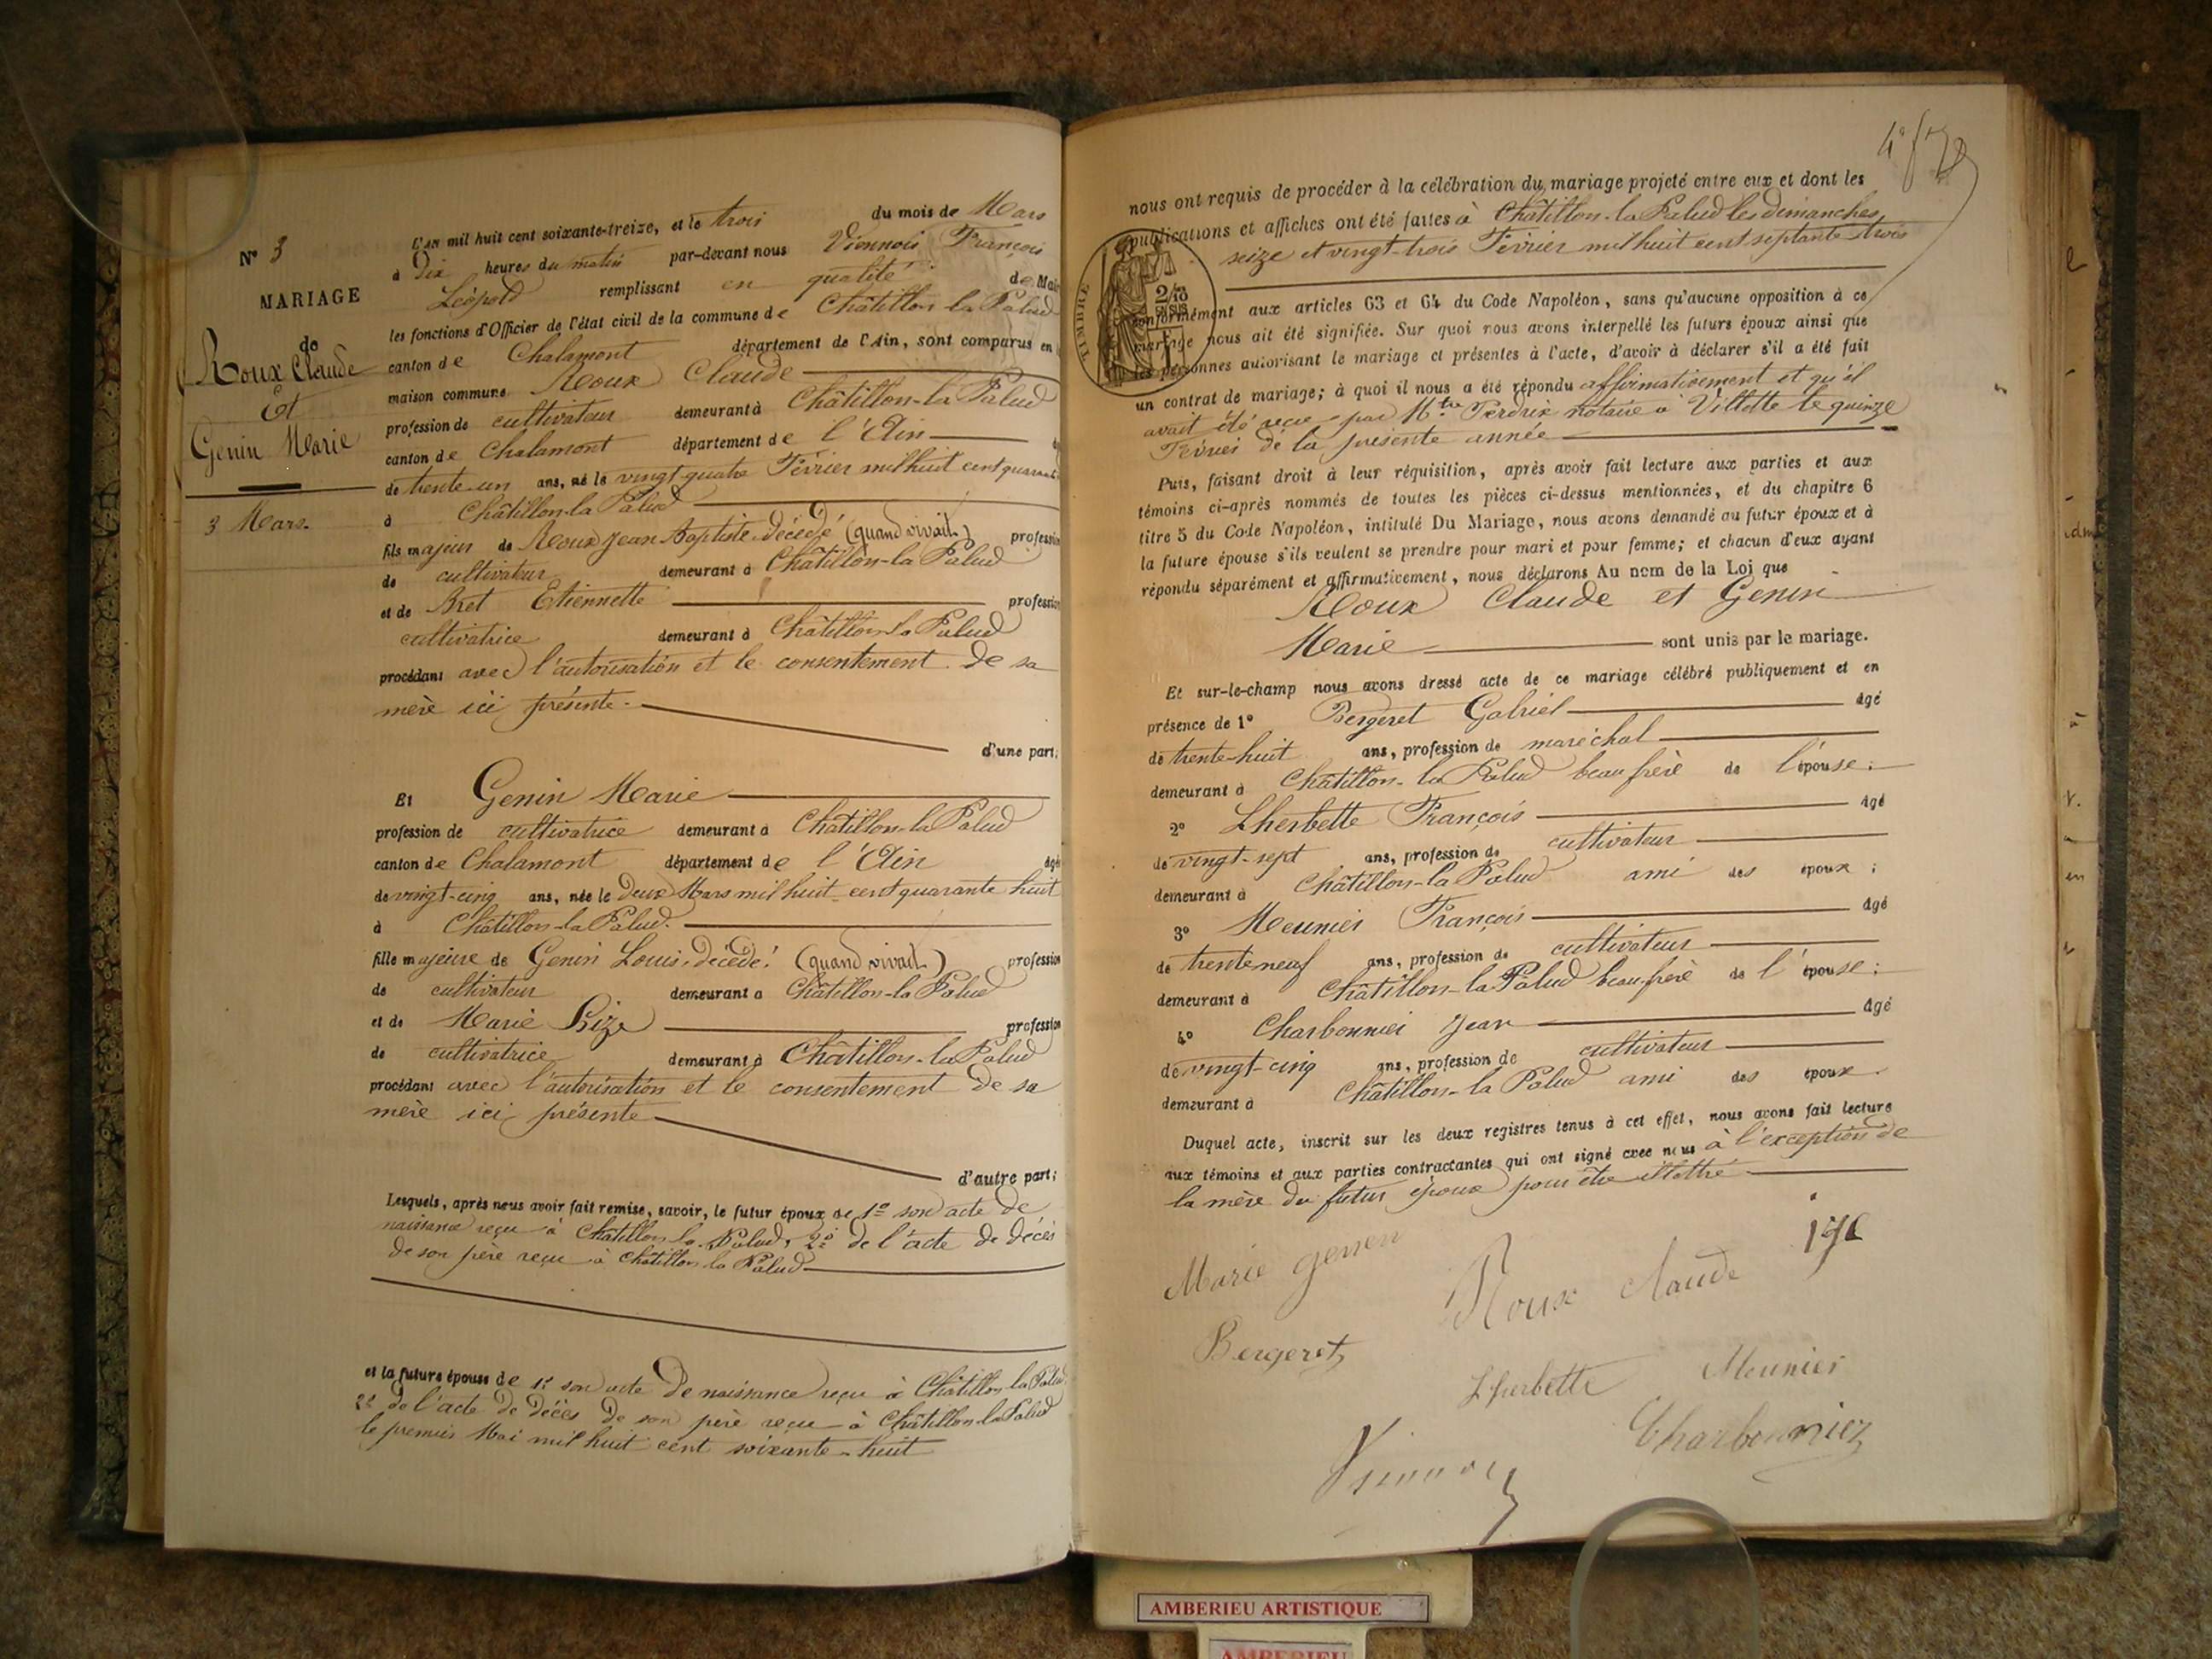 N° 3
MARIAGE
de
Roux Claude
Et
Genin Marie
3 Mars.
L'an mil huit cent soixante-treize, et le trois du mois de Mars
à Dix heures du matin par-devant nous Vionnois François
Léopold remplissant en qualité de Mai
les fonctions d'Officier de l'état civil de la commune de Châtillon la Palud
canton de Chalamont département de l'Ain, sont comparus en
maison commune Roux Claude
profession de cultivateur demeurant à Châtillon-la Palud
canton de Chalamont département de l'Ain
de trente-un ans, né le vingt-quatre Février mil huit cent quarante
à Châtillon-la Palud
fils majeur de Roux Jean Baptiste décédé (quand vivait) profession
de cultivateur demeurant à Châtillon-la Palud
et de Bret Etiennette profession
cultivatrice demeurant à Châtillon la Palud
procédant avec l'autorisation et le consentement de sa
mère ici présente.
d'une part;
Et Genin Marie
profession de cultivatrice demeurant à Châtillon-la Palud
canton de Chalamont département de l'Ain âgée
de vingt-cinq ans, née le deux Mars mil huit-cent quarante huit
à Châtillon-la Palud.
fille majeure de Genin Louis, décédé (quand vivait) profession
de cultivateur demeurant à Châtillon-la Palud
et de Marie Lize profession
de cultivatrice demeurant à Châtillon-la Palud
procédant avec l'autorisation et le consentement de sa
mère ici présente
d'autre part;
Lesquels, après nous avoir fait remise, savoir, le futur époux de 1° son acte de
naissance reçu à Châtillon la Palud, 2° de l'acte de décès
de son père reçu à Châtillon la Palud
et la future épouse de 1° son acte de naissance reçu à Châtillon la Palud
2° de l'acte de décès de son père reçu à Châtillon la Palud
le premier Mai mil huit cent soixante-huit
nous ont requis de procéder à la célébration du mariage projeté entre eux et dont les
publications et affiches ont été faites à Châtillon-la Palud les dimanches
seize et vingt-trois Février mil huit cent septante-trois
TIMBRE
conformément aux articles 63 et 64 du Code Napoléon, sans qu'aucune opposition à ce
mariage nous ait été signifiée. Sur quoi nous avons interpellé les futurs époux ainsi que
les personnes autorisant le mariage et présentes à l'acte, d'avoir à déclarer s'il a été fait
un contrat de mariage; à quoi il nous a été répondu affirmativement et qu'il
avait été reçu par Mtre Perdrix notaire à Villette le quinze
Février de la présente année
Puis, faisant droit à leur réquisition, après avoir fait lecture aux parties et aux
témoins ci-après nommés de toutes les pièces ci-dessus mentionnées, et du chapitre 6
titre 5 du Code Napoléon, intitulé Du Mariage, nous avons demandé au futur époux et à
la future épouse s'ils veulent se prendre pour mari et pour femme; et chacun d'eux ayant
répondu séparément et affirmativement, nous déclarons Au nom de la Loi que
Roux Claude et Genin
Marie sont unis par le mariage.
Et sur-le-champ nous avons dressé acte de ce mariage célébré publiquement et en
présence de 1° Bergeret Gabriel âgé
de trente-huit ans, profession de maréchal
demeurant à Châtillon-la Palud beau frère de l'épouse;
2° Lherbette François âgé
de vingt-sept ans, profession de cultivateur
demeurant à Châtillon-la Palud ami des époux;
3° Meunier François âgé
de trente neuf ans, profession de cultivateur
demeurant à Châtillon-la Palud beau-frère de l'épouse;
4° Charbonnier Jean âgé
de vingt-cinq ans, profession de cultivateur
demeurant à Châtillon-la Palud ami des époux.
Duquel acte, inscrit sur les deux registres tenus à cet effet, nous avons fait lecture
aux témoins et aux parties contractantes qui ont signé avec nous à l'exception de
la mère du futur époux pour être illettré
Marie genen
Roux claude
Bergeret
Lherbette
Meunier
Charbonnier
AMBERIEU ARTISTIQUE
AMBERIEU